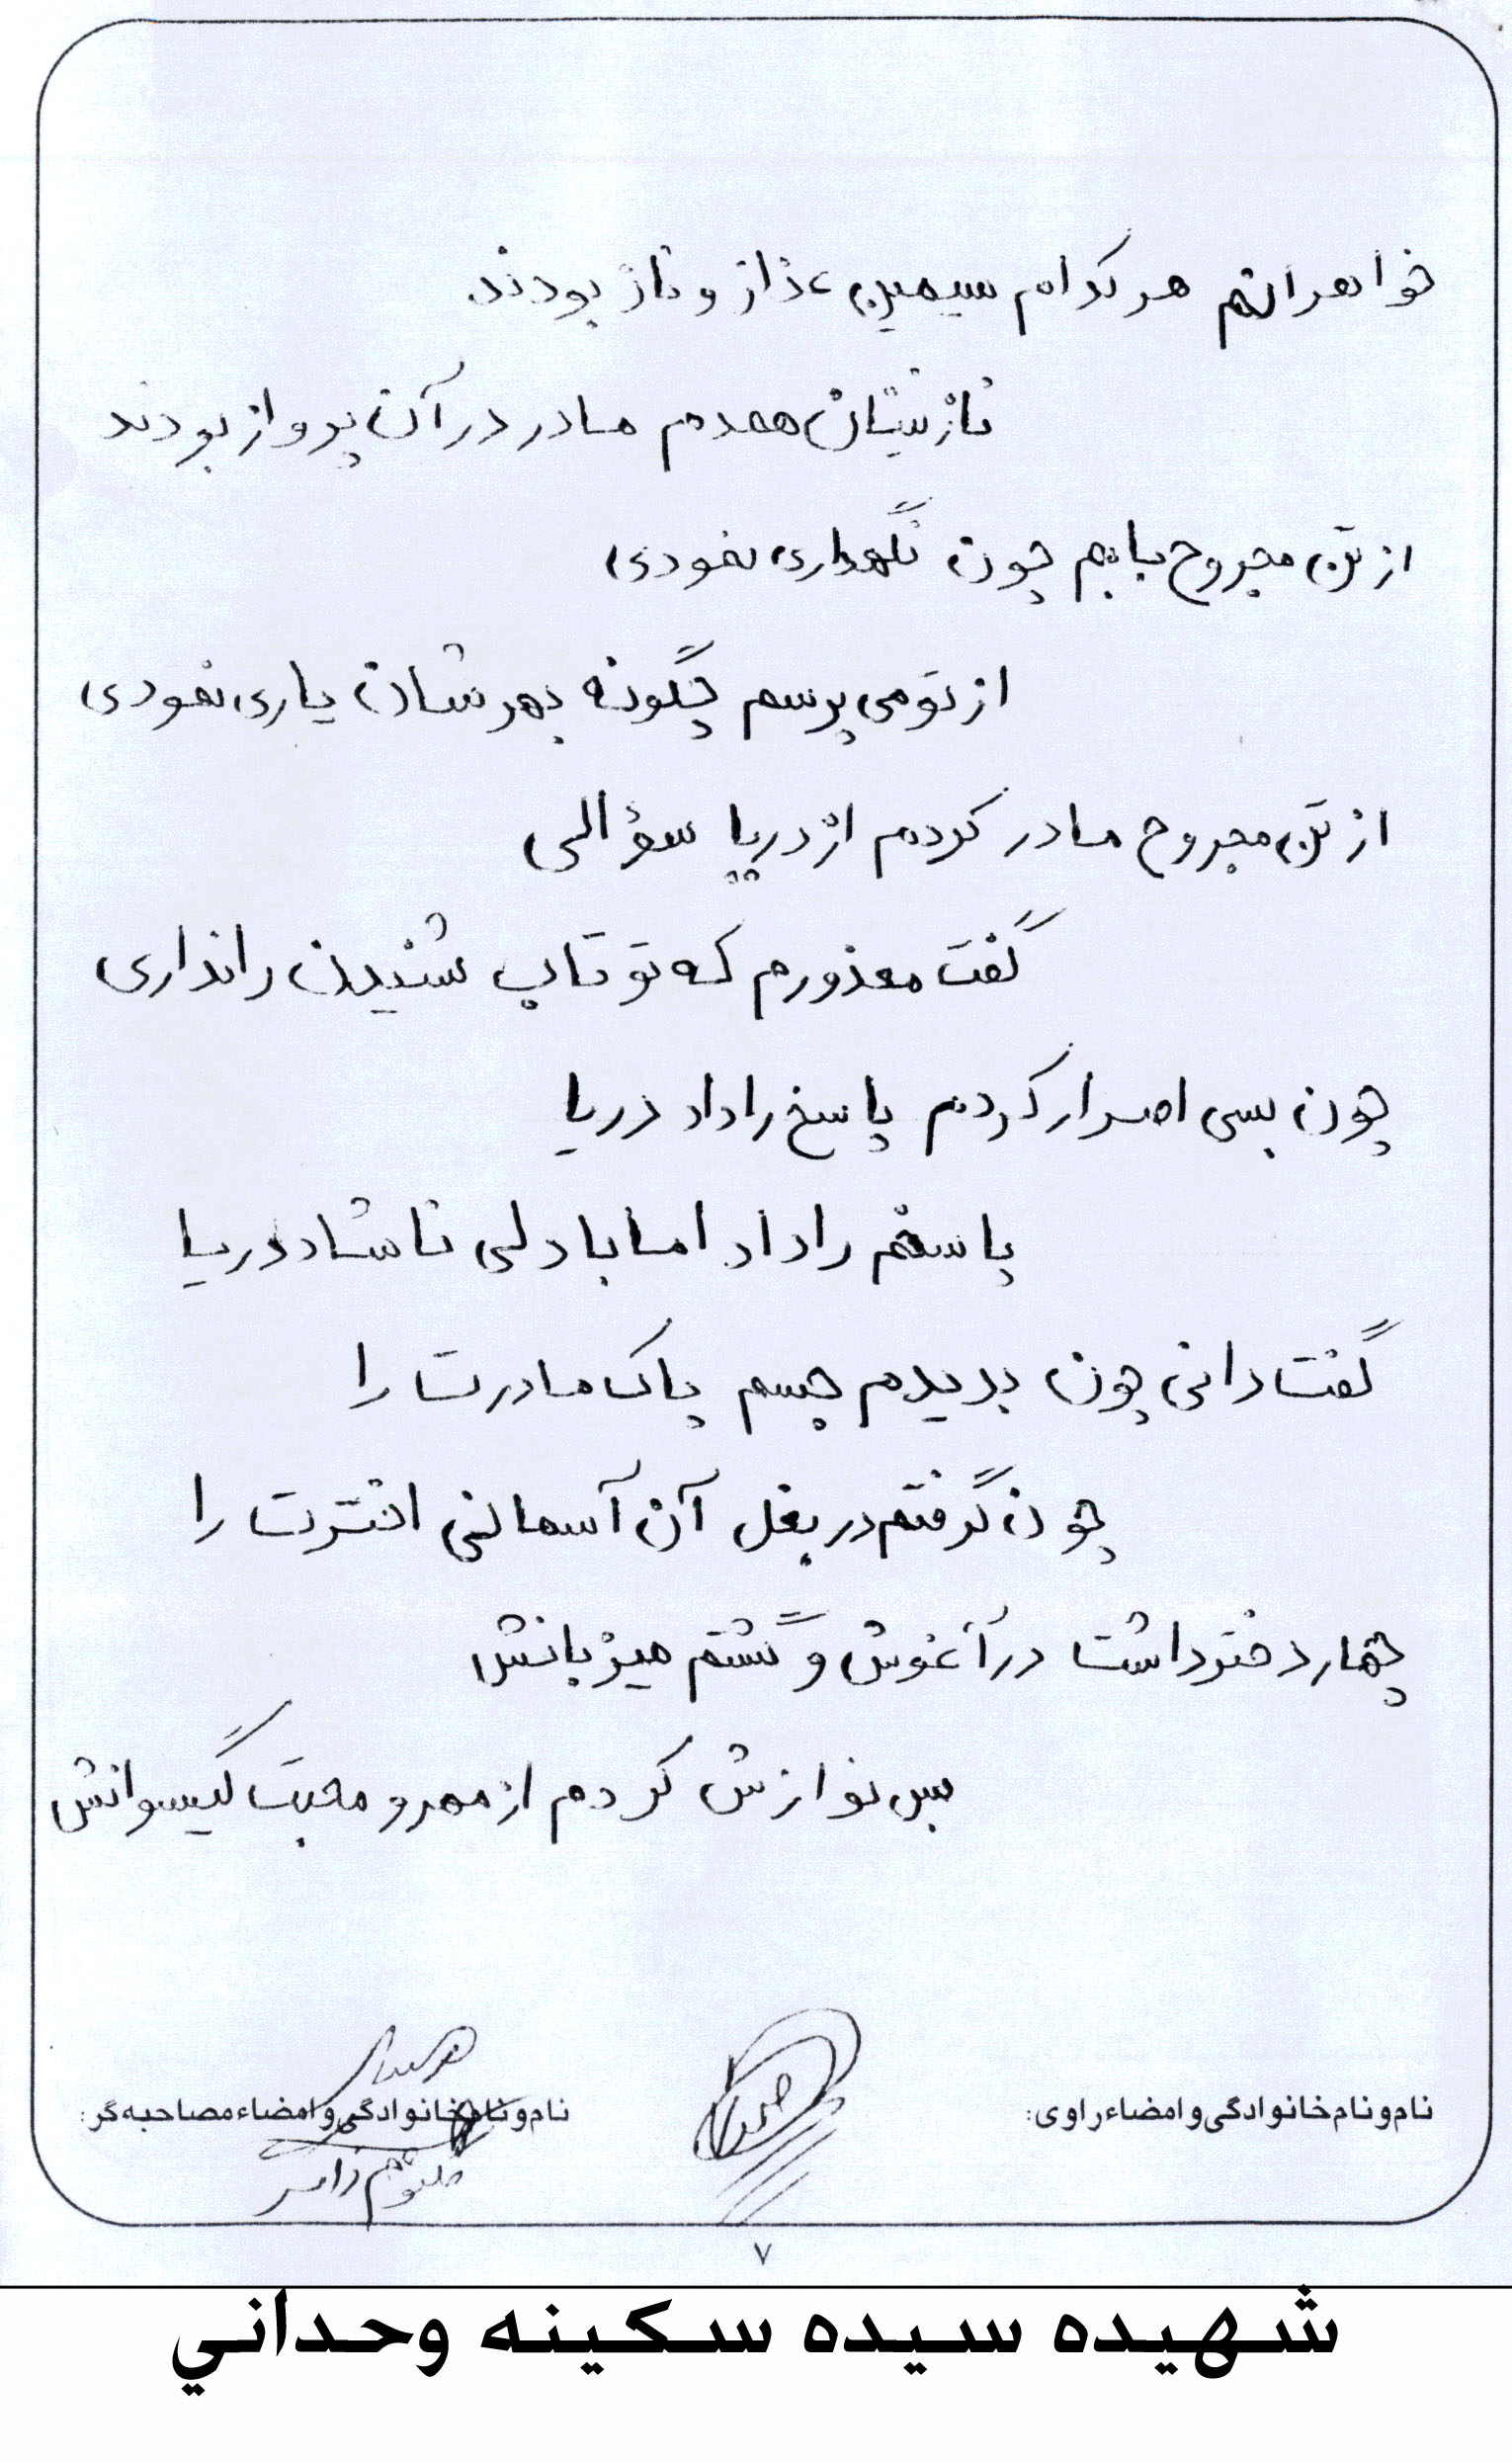 خواهرانم هر کدام سیمین عذار و ناز بودند
نازنینان همدم مادر در آن پرواز بودند
از تن مجروح بابم چون نگهداری نمودی
از تو می پرسم چگونه بهرشان یاری نمودی
از تن مجروح مادر کردم از دریا سؤالی
گفت معذورم که تو تاب شنیدن را نداری
چون بسی اصرار کردم پاسخ را داد دریا
پاسخم را داد اما با دلی ناشاد دریا
گفت دانی چون بدیدم جسم پاک مادرت را
چون گرفتم در بغل آن آسمانی اخترت را
چهار دختر داشت در آغوش و گشتم میزبانش
بس نوازش کردم از مهر و محبت گیسوانش
نام و نام خانوادگی و امضاء راوی:
نام و نام خانوادگی و امضاء مصاحبه گر:
۷
شهیده سیده سکینه وحداني